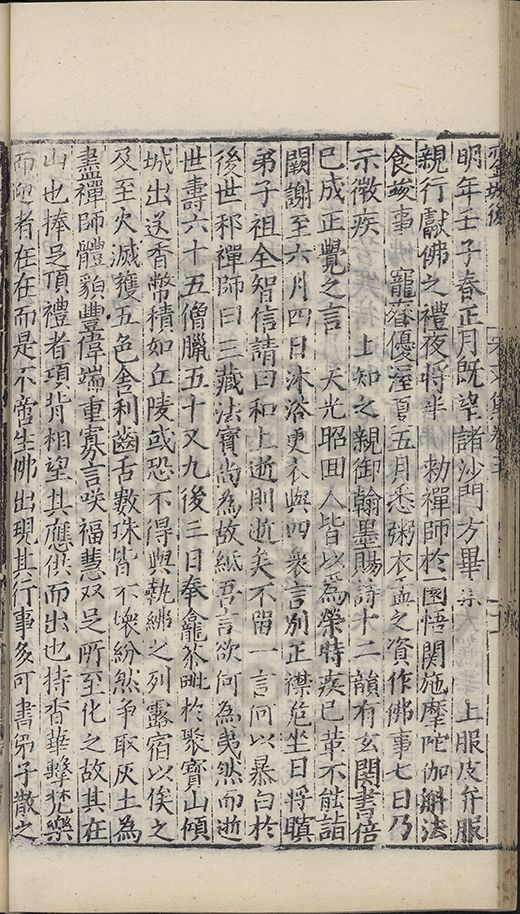 明年壬子春正月既望諸沙門方畢集 上服皮弁服
親行獻佛之禮夜將半 勑禪師於圜悟関施摩陀伽斛法
食竣事 寵眷優渥夏五月悉粥衣盂之資作佛事七日乃
示微疾 上知之親御翰墨賜詩十二韻有玄関書倍
已成正覺之言 天光昭回人皆以爲榮特疾已革不能詣
闕謝至六月四日沐浴更衣與四衆言別正襟危坐日將瞑
弟子祖全智信請曰和上逝則逝矣不留一言何以暴白於
後世耶禪師曰三藏法寶尚爲故紙吾言欲何爲夷然而逝
世壽六十五僧臘五十又九後三日奉龕荼毗於聚寶山傾
城出送香幣積如丘陵或恐不得與執紼之列露宿以俟之
及至火滅獲五色舍利齒舌數珠皆不壞紛然争取灰土爲
盡禪師體貌豐偉端重寡言咲福慧双足所至化之故其在
山也捧足頂禮者項背相望其應供而出也持香華擊梵樂
而迎者在在而是不啻生佛出現其行事多可書弟子散之